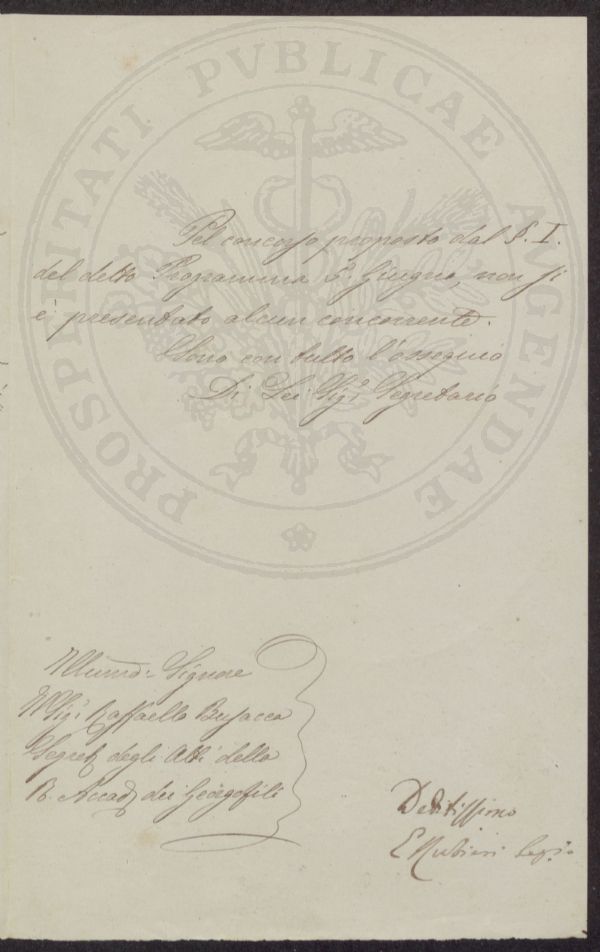 PROSPERITATI PVBLICAE AVGENDAE
Pel concorso proposto dal §. I.
del detto Programma 5. Giugno, non si
è presentato alcun concorrente.
Sono con tutto l'ossequio
Di Lei Sigr. Segretario
Illumo: Signore
Il Sigr. Raffaello Busacca
Segret degli Atti della
R. Accad dei Georgofili
Devotissimo
E Rubieri